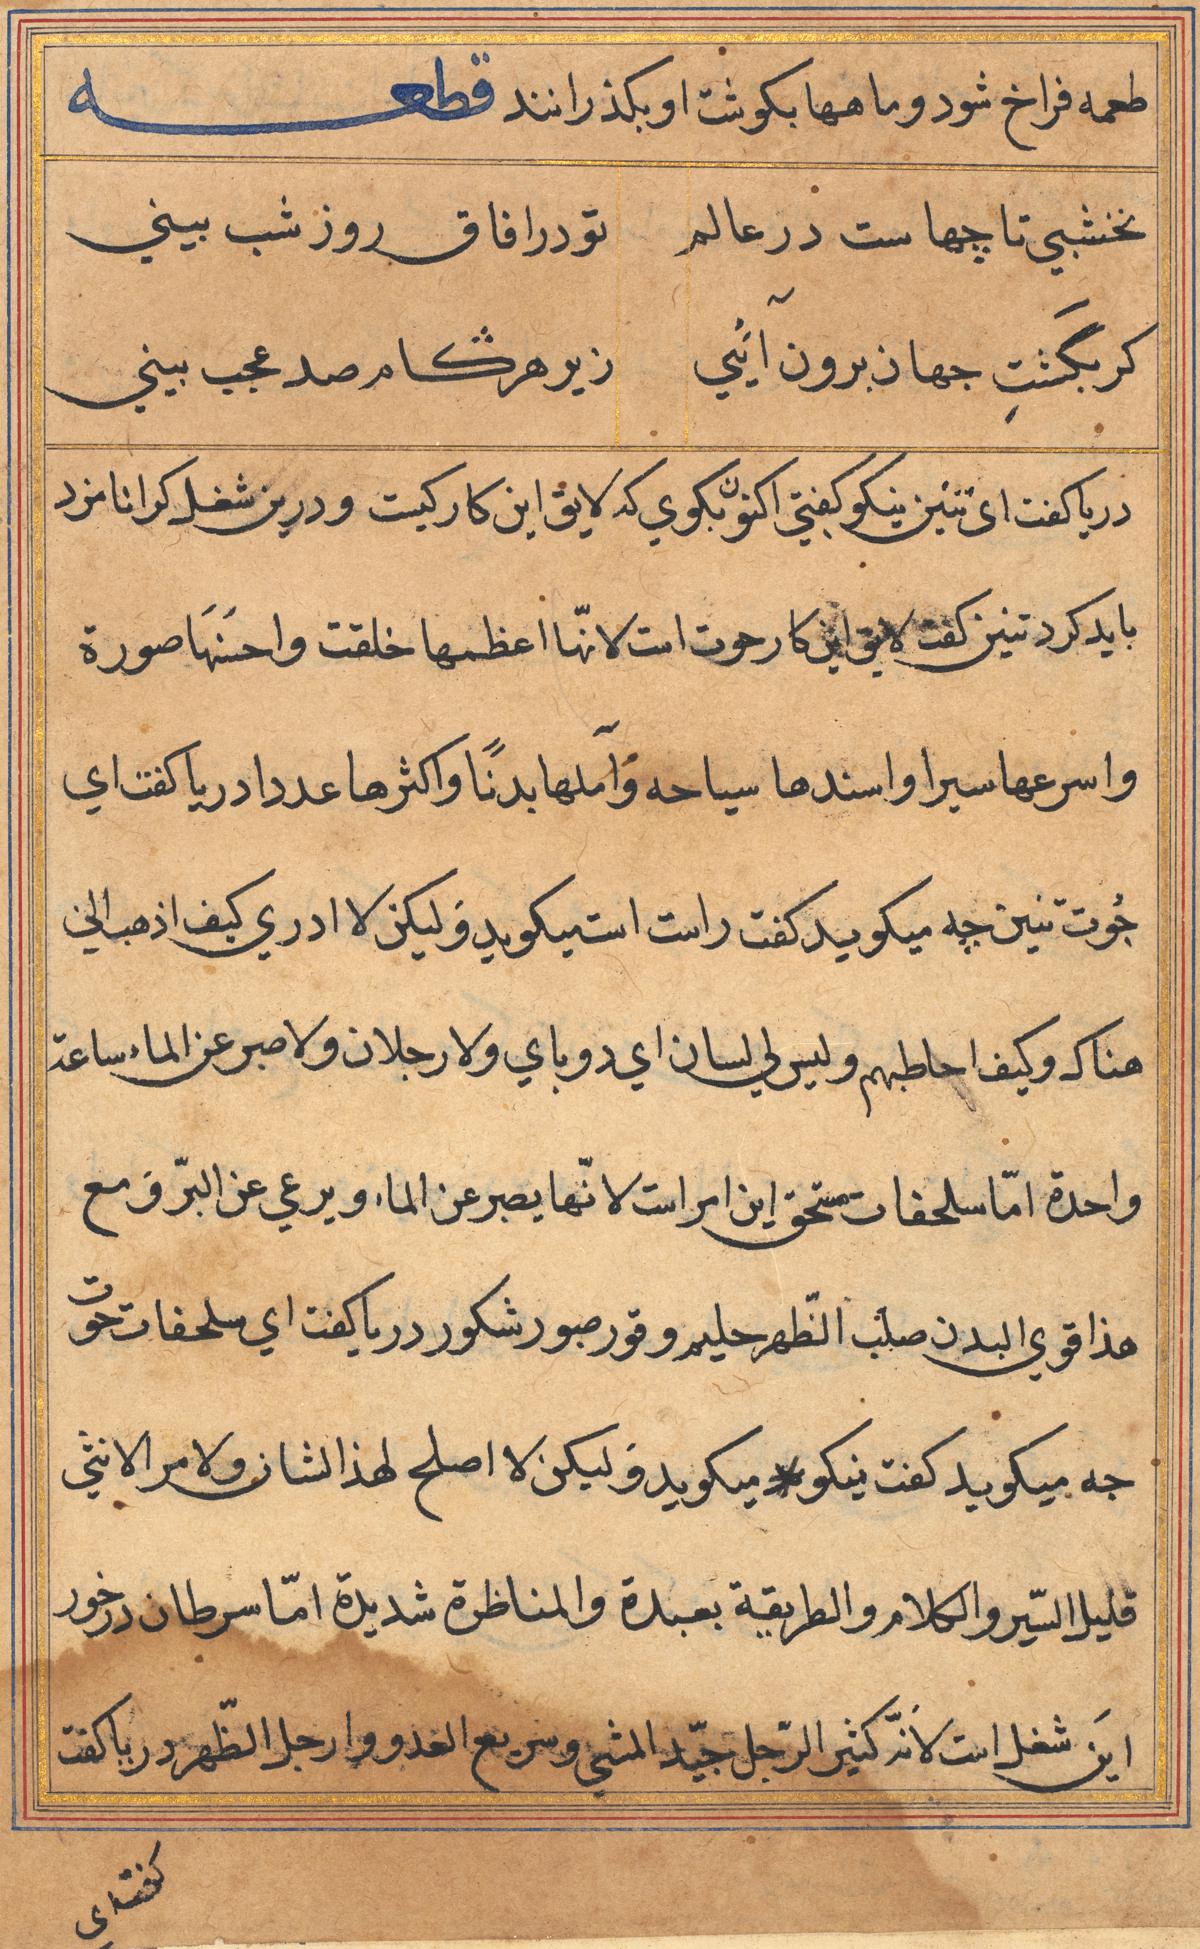 طعمه فراخ شود و ماهها بكوشت او بكذرانند قطعه
نخشبي تا چهاست در عالم تو در افاق روز شب بيني
كر بگشتِ جهان برون آئي زير هر كام صد عجب بيني
دريا كفت اى تنين نيكو كفتي اكنون بكوي كه لايق اين كار كيست و درين شغل كرا نامزد
بايد كرد تنين كفت لايق اين كار حوت است لانّها اعظمها خلقت و احسَنَهَا صورة
و اسرعها سيرا و اسندها سياحه وَ آملها بدنًا و اكثرها عددا دريا كفت اي
حُوت تنين چه ميكويد كفت راست است ميكويد وَليكن لا ادري كيف اذهب الي
هناك و كيف احاطبهم و ليس لي لسان اي دو باي و لا رجلان و لا صبر عن الماء ساعة
واحدة امّا سلحفات مستحق اين امر است لانّها يصبر عن الماء و يرعي عن البرّ وَ مع
هذا قوي البدن صلب الظّهر حليم وقور صبور شكور دريا كفت اي سلحفات حوت
جه ميكويد كفت نيكو ميكويد وَليكن لا اصلح لهذا لشان و لامر الانثي
قليل السّير و الكلام و الطريقية بعيدة و المناظرة شديدة امّا سرطان درخور
اين شغل است لانّه كثير الرّجل جيّد المشي و سريع الغدو و ارجل الظّهر دريا كفت
كفت اي